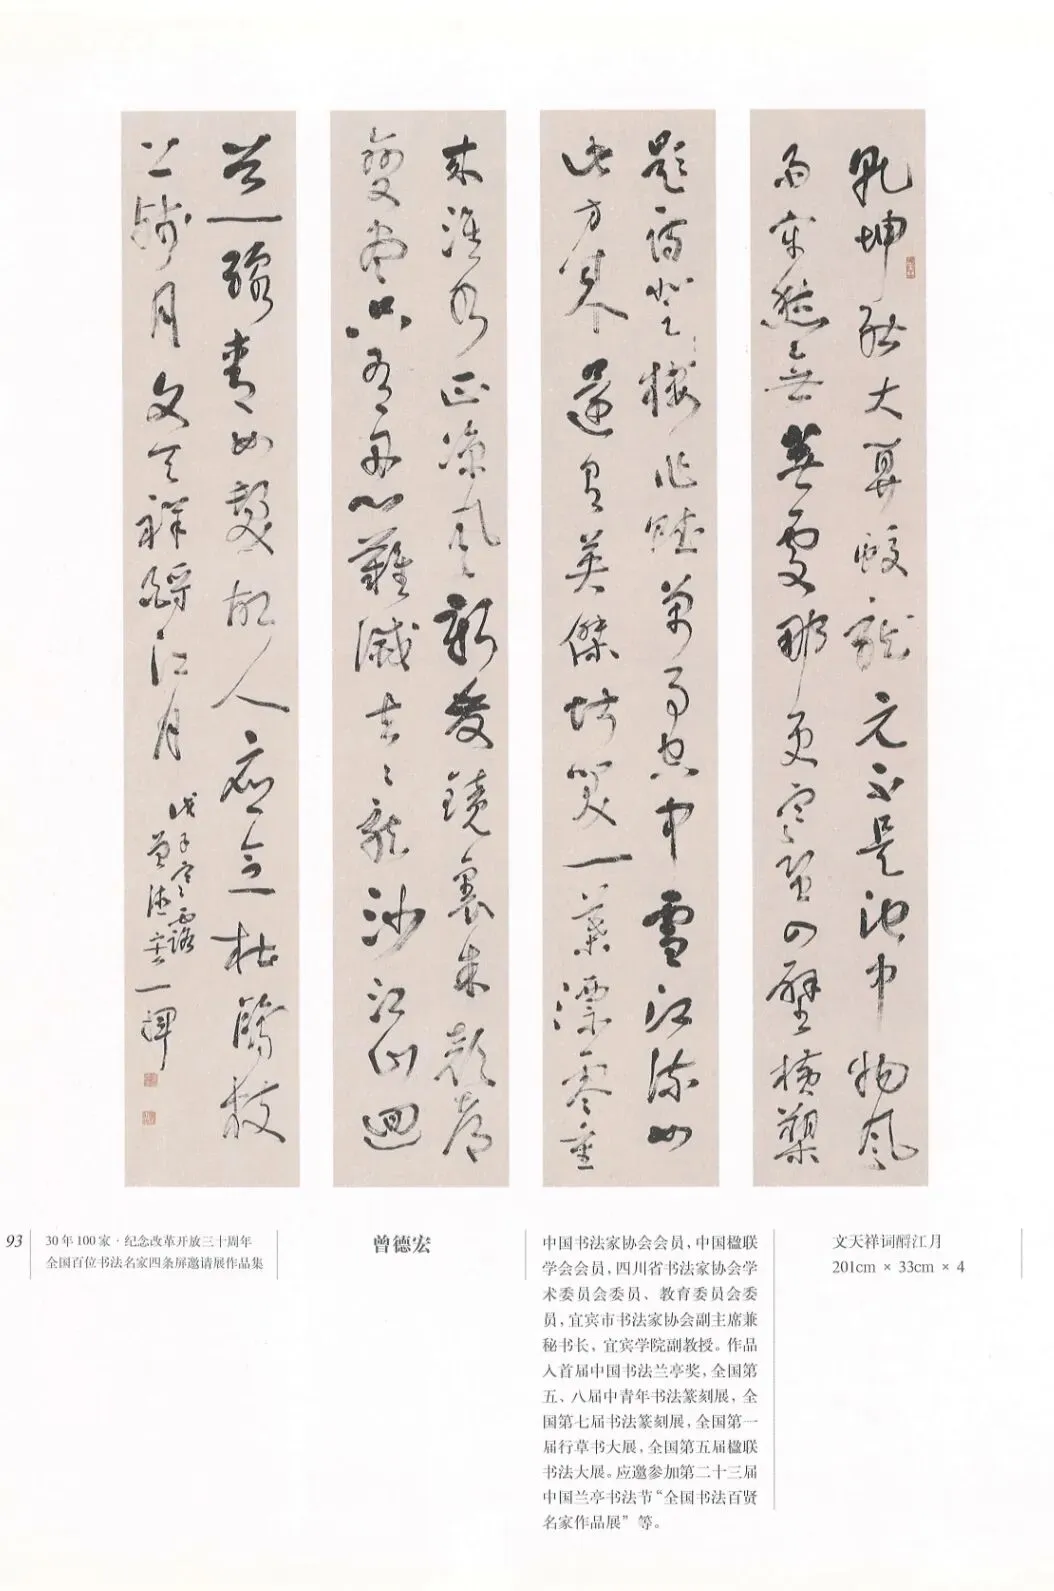 乾坤能大算蛟龍元不是池中物風
雨牢愁無著處那更寒蛩四壁橫槊
題詩登樓作賦萬事空中雪江流如
此方來還有英傑堪笑一葉漂零重
來淮水正涼風新發鏡裏朱顏都
變盡只有丹心難滅去去龍沙江山迴
首一線青如髮故人應念杜鵑枝
上殘月文天祥酹江月
戊子寒露
曾德宏一揮
93
30年100家·纪念改革开放三十周年
全国百位书法名家四条屏邀请展作品集
曾德宏
中国书法家协会会员，中国楹联
学会会员，四川省书法家协会学
术委员会委员、教育委员会委
员，宜宾市书法家协会副主席兼
秘书长，宜宾学院副教授。作品
入首届中国书法兰亭奖，全国第
五、八届中青年书法篆刻展，全
国第七届书法篆刻展，全国第一
届行草书大展，全国第五届楹联
书法大展。应邀参加第二十三届
中国兰亭书法节“全国书法百贤
名家作品展”等。
文天祥词酹江月
201cm × 33cm × 4